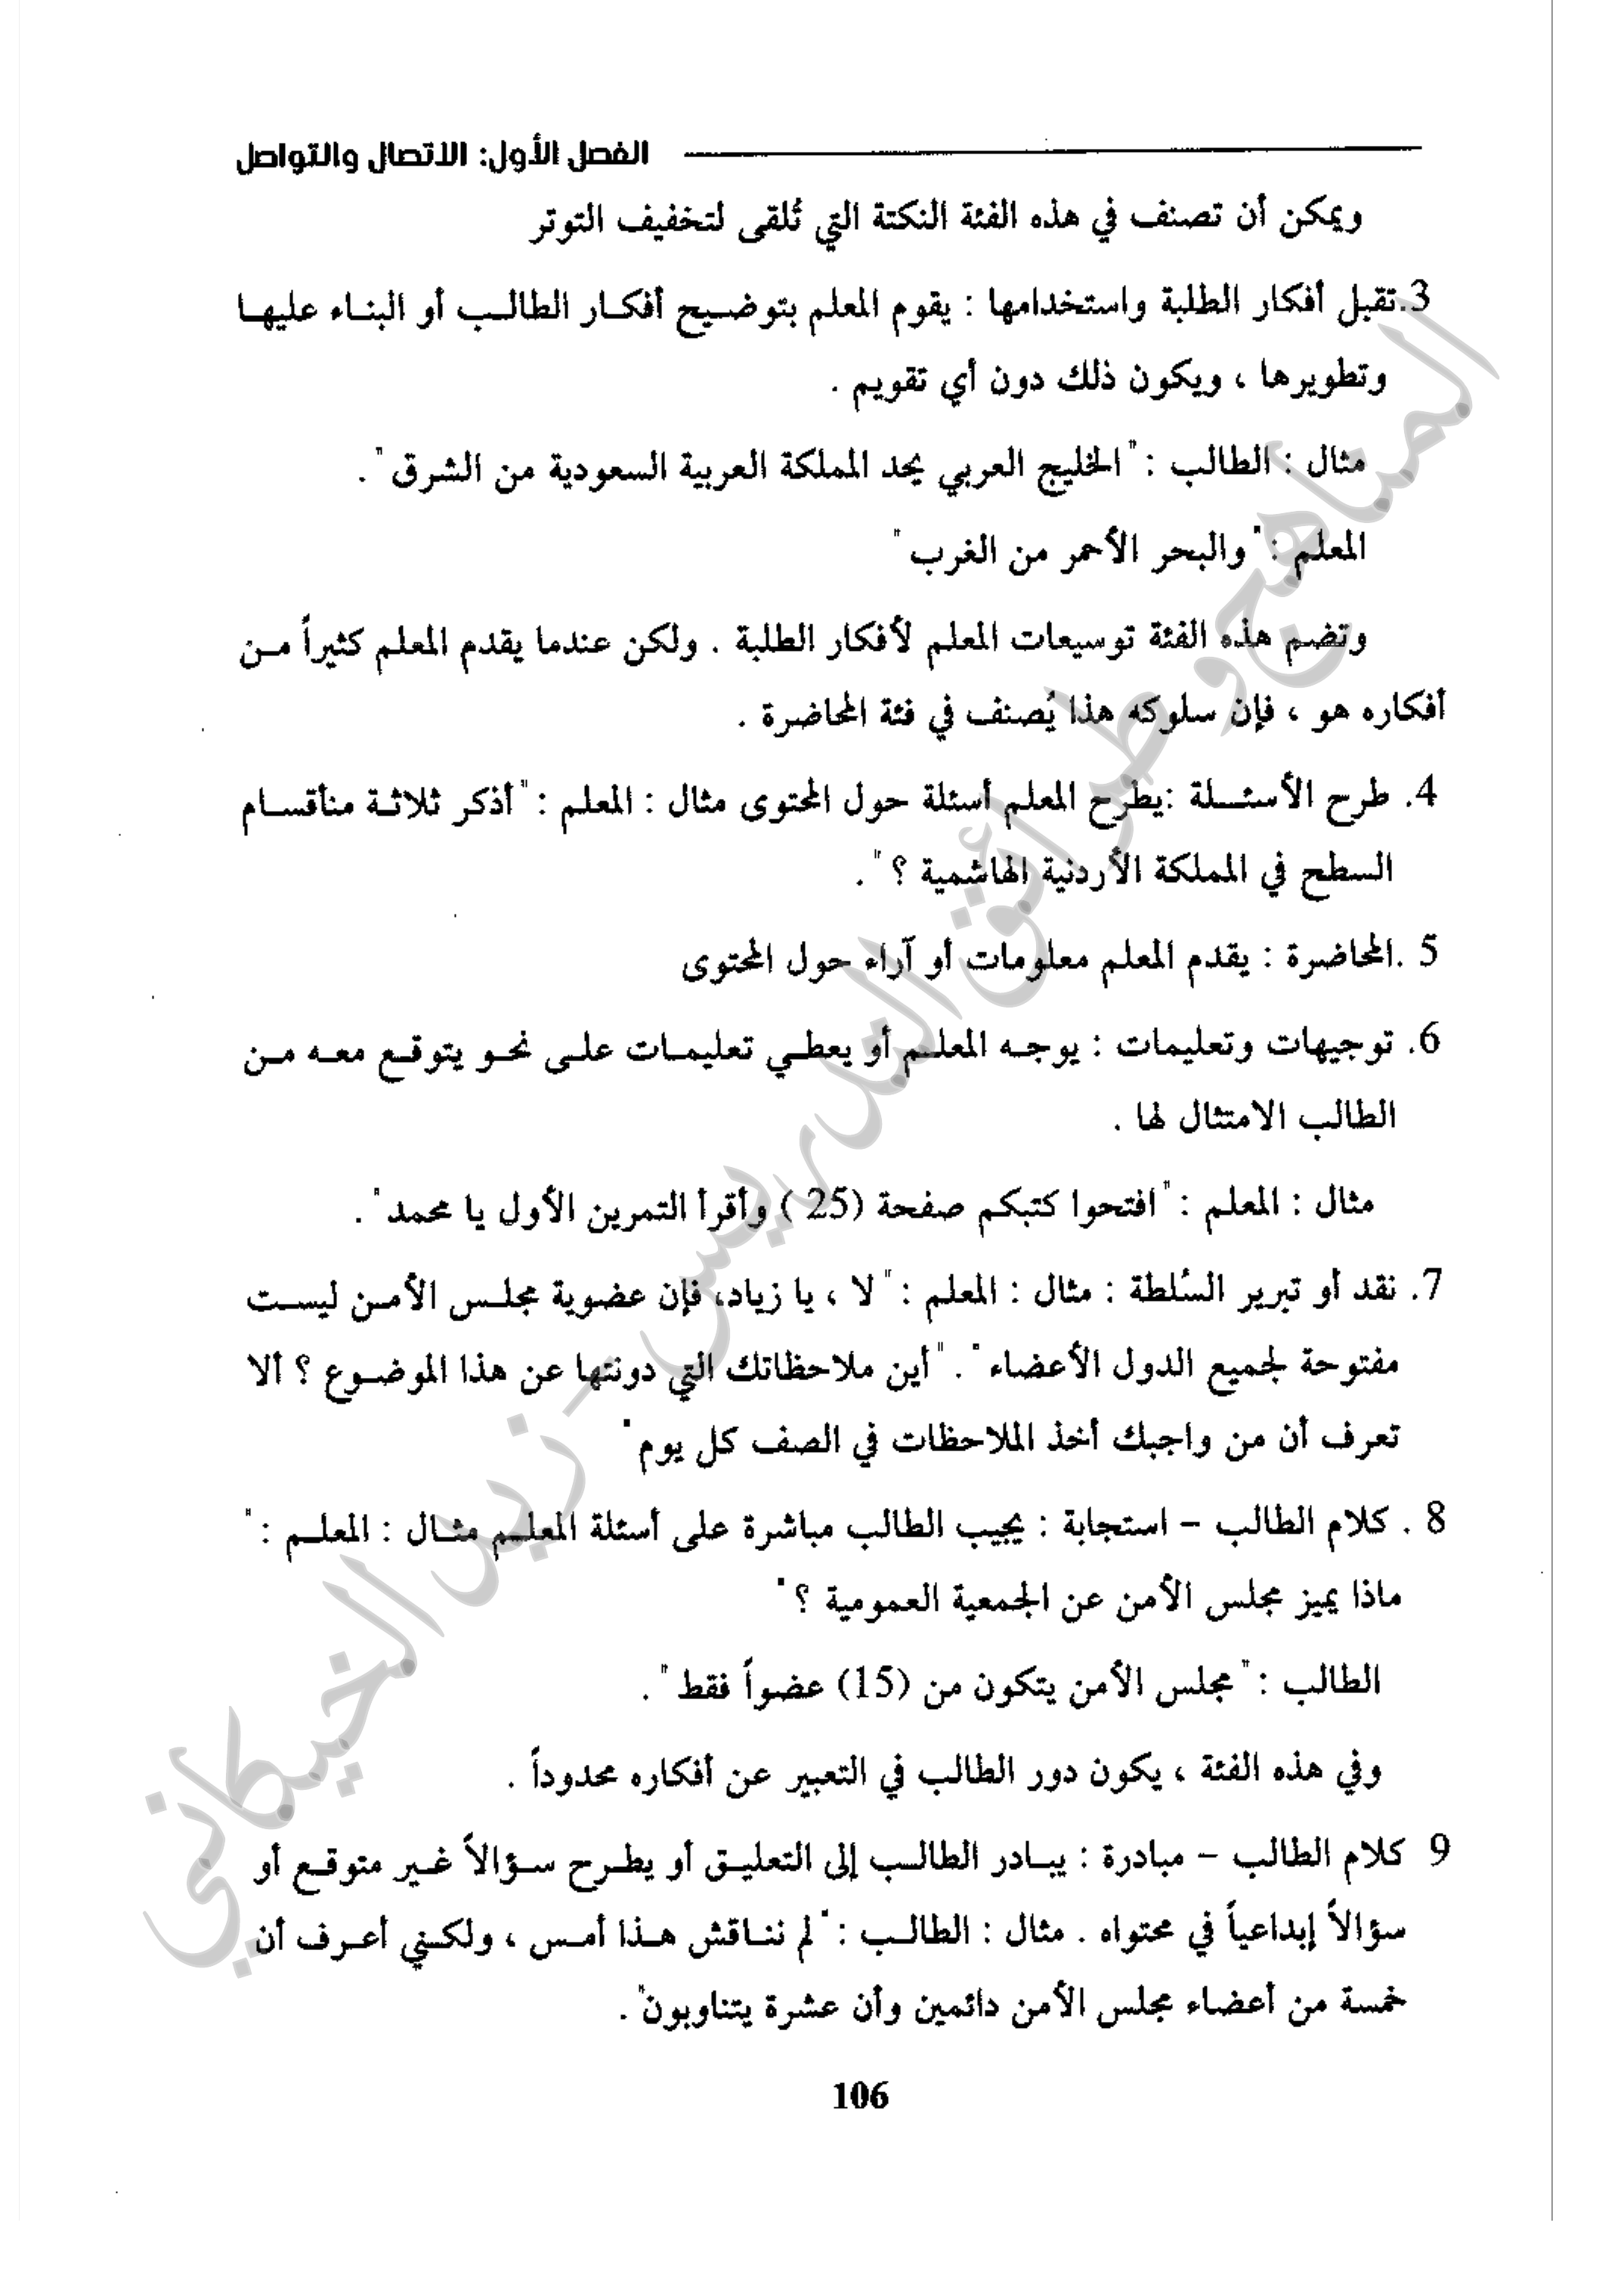 الفصل الأول: الاتصال والتواصل
ويمكن أن تصنف في هذه الفئة النكتة التي تُلقى لتخفيف التوتر
3.تقبل أفكار الطلبة واستخدامها : يقوم المعلم بتوضيح أفكار الطالب أو البناء عليها
وتطويرها ، ويكون ذلك دون أي تقويم .
مثال : الطالب : " الخليج العربي يحد المملكة العربية السعودية من الشرق " .
المعلم : " والبحر الأحمر من الغرب "
وتضم هذه الفئة توسيعات المعلم لأفكار الطلبة . ولكن عندما يقدم المعلم كثيراً من
أفكاره هو ، فإن سلوكه هذا يُصنف في فئة المحاضرة .
4. طرح الأسئلة :يطرح المعلم أسئلة حول المحتوى مثال : المعلم : " أذكر ثلاثة منأقسام
السطح في المملكة الأردنية الهاشمية ؟ " .
5 .المحاضرة : يقدم المعلم معلومات أو آراء حول المحتوى
6. توجيهات وتعليمات : يوجه المعلم أو يعطي تعليمات على نحو يتوقع معه من
الطالب الامتثال لها .
مثال : المعلم : " افتحوا كتبكم صفحة (25 ) وأقرأ التمرين الأول يا محمد " .
7. نقد أو تبرير السُلطة : مثال : المعلم : " لا ، يا زياد، فإن عضوية مجلس الأمن ليست
مفتوحة لجميع الدول الأعضاء " . " أين ملاحظاتك التي دونتها عن هذا الموضوع ؟ ألا
تعرف أن من واجبك أخذ الملاحظات في الصف كل يوم "
8 . كلام الطالب – استجابة : يجيب الطالب مباشرة على أسئلة المعلم مثال : المعلم : "
ماذا يميز مجلس الأمن عن الجمعية العمومية ؟ "
الطالب : " مجلس الأمن يتكون من (15) عضواً فقط " .
وفي هذه الفئة ، يكون دور الطالب في التعبير عن أفكاره محدوداً .
9 كلام الطالب – مبادرة : يبادر الطالب إلى التعليق أو يطرح سؤالاً غير متوقع أو
سؤالاً إبداعياً في محتواه . مثال : الطالب : " لم نناقش هذا أمس ، ولكني أعرف أن
خمسة من أعضاء مجلس الأمن دائمين وأن عشرة يتناوبون" .
106
المناهج وطرائق التدريس - زيد الخيكاني